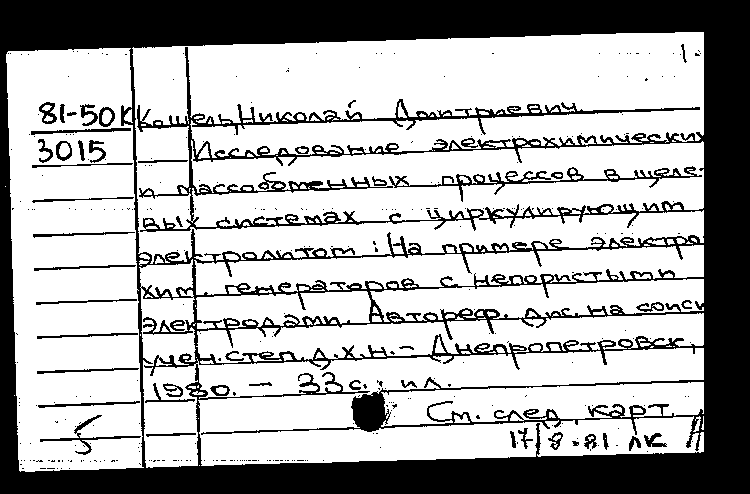 1.
81-50К Кошель, Николай Дмитриевич
3015 Исследование электрохимических
и массообменных процессов в щеле-
вых системах с циркулирующим
электролитом: На примере электро-
хим. генераторов с непористыми
электродами. Автореф. дис. на соиск
учен. степ. д.х.н. - Днепропетровск,
1980. - 33 с.: ил.
См. след. карт.
5
17/8.81 ЛК